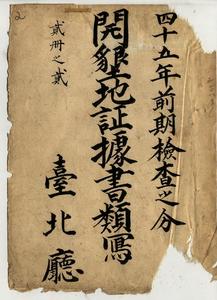 四十五年前期檢査之分
開墾地証據書類寫
貳冊之貳
臺北廳
2